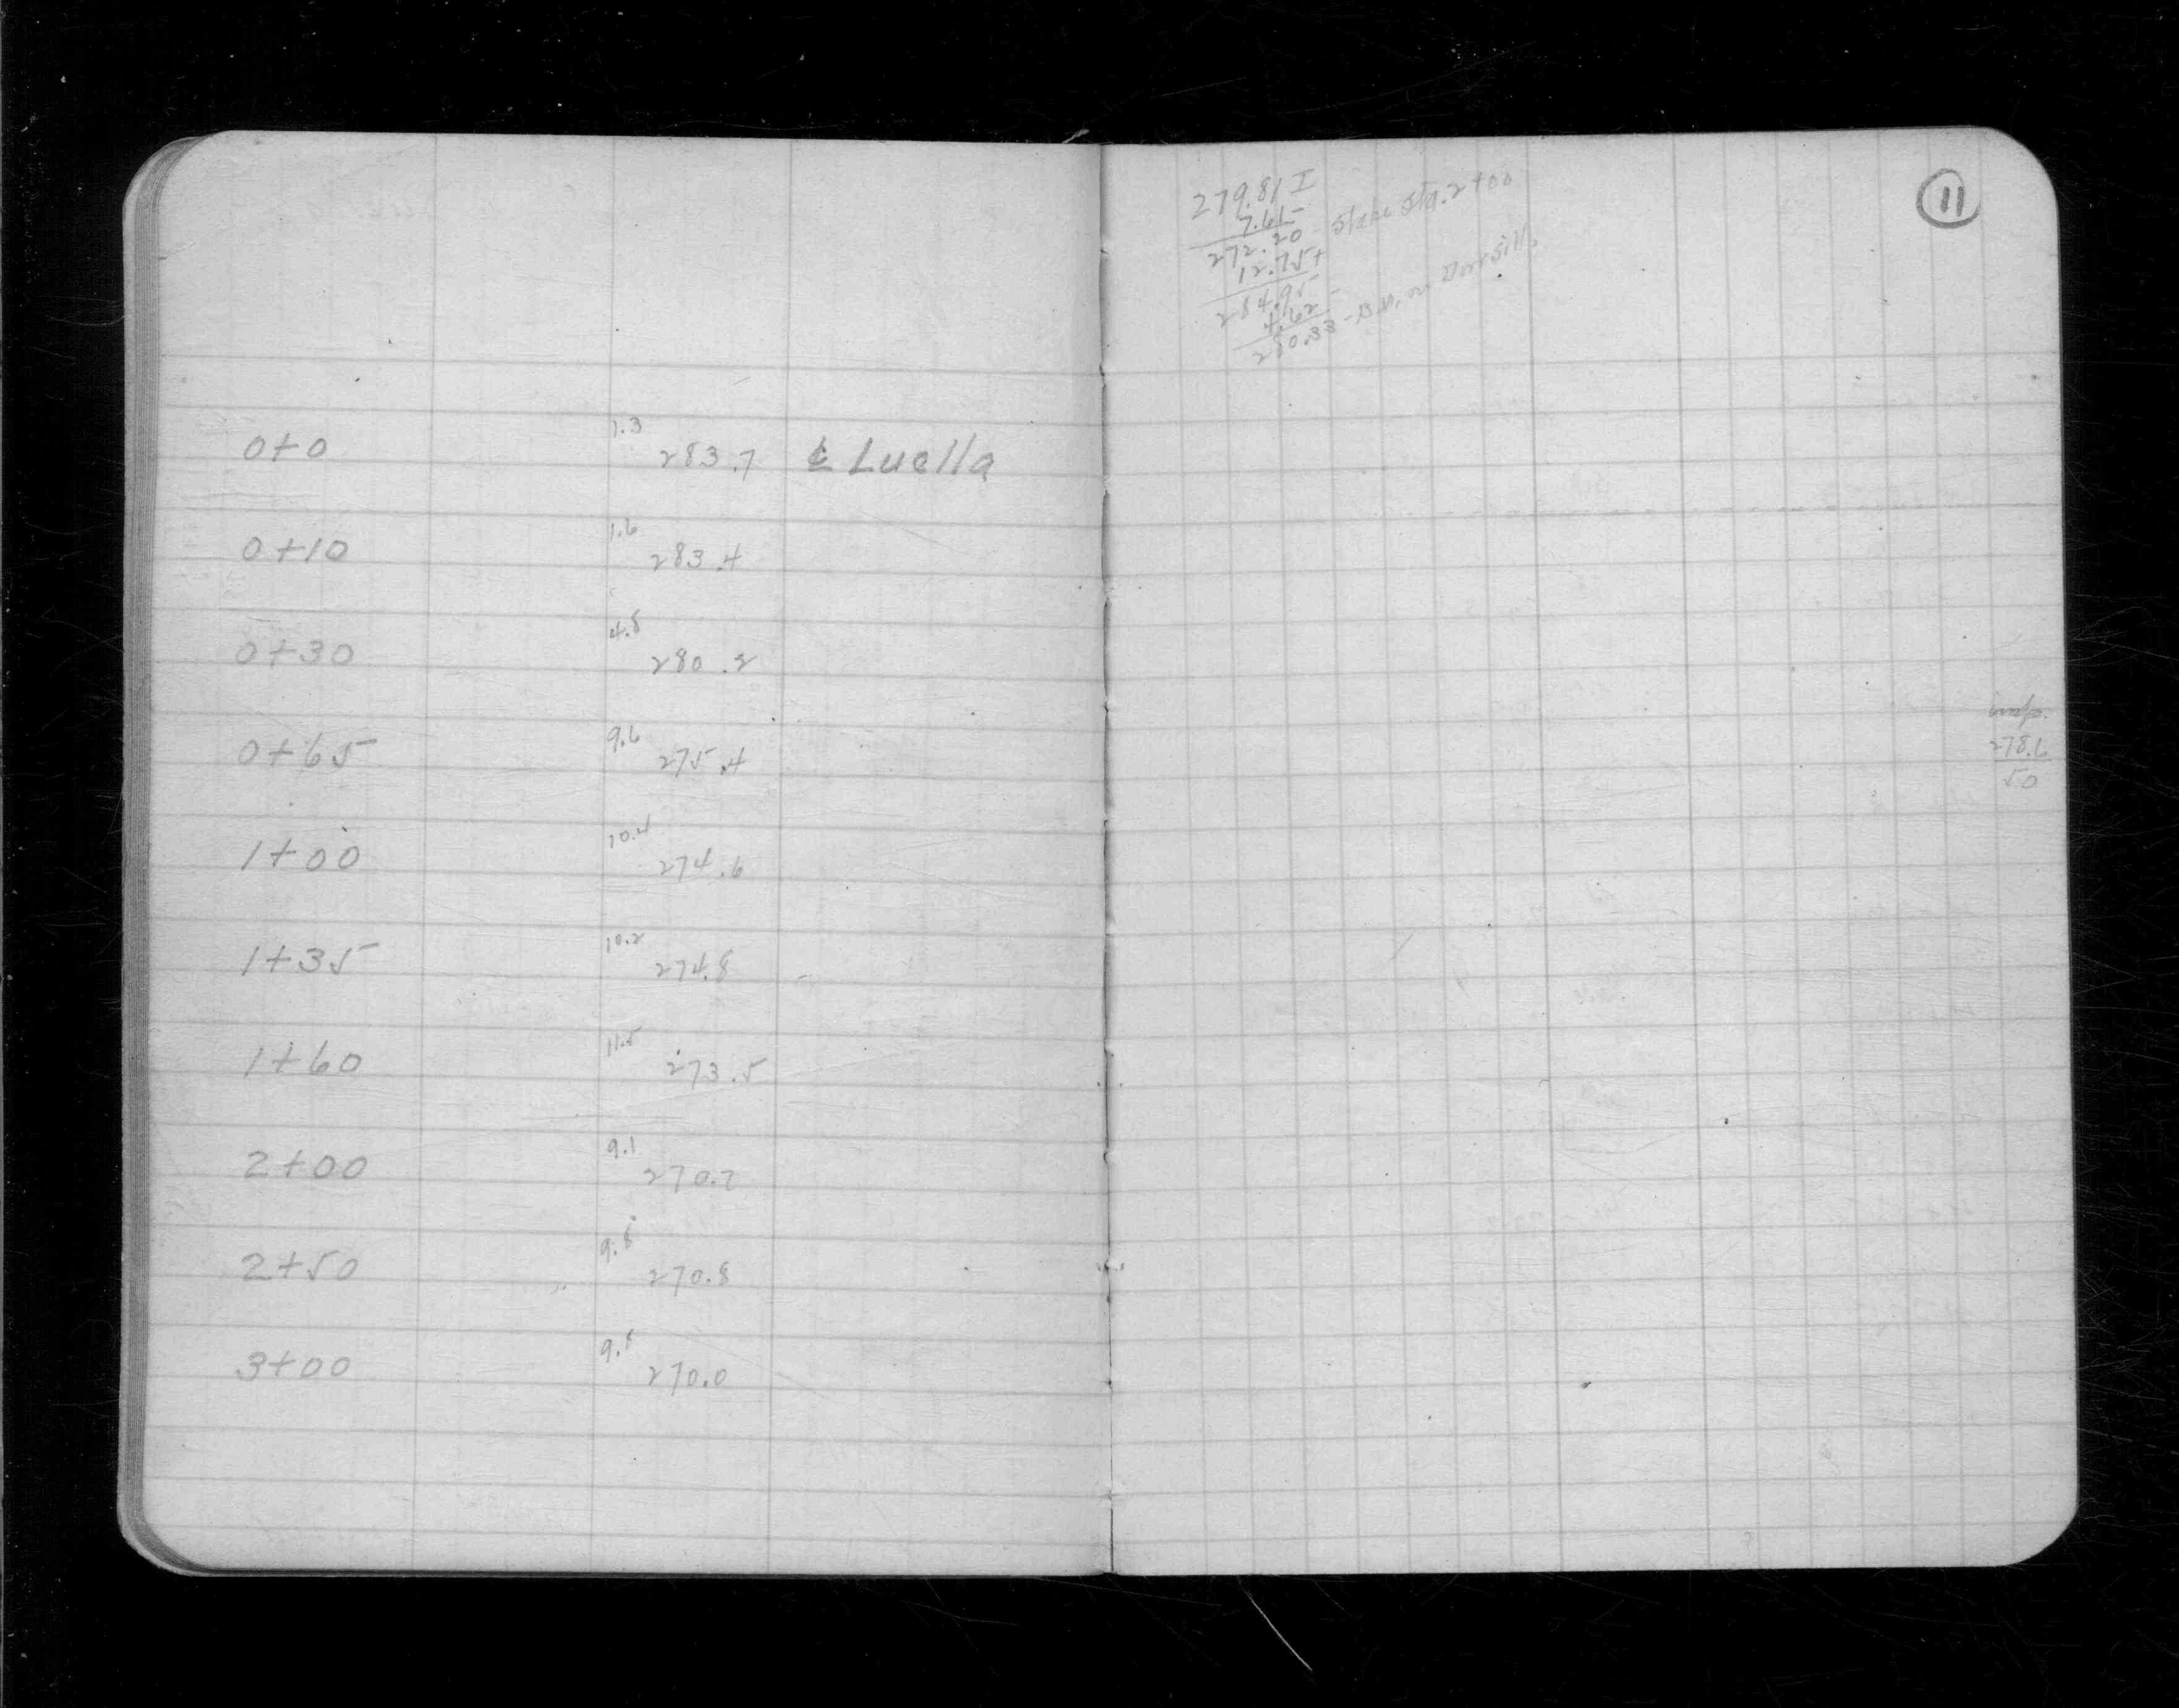 0+0 1.3 283.7 ℄ Luella
0+10 1.6 283.4
0+30 4.8 280.2
0+65 9.6 275.4
1+00 10.4 274.6
1+35 10.2 274.8
1+60 11.5 273.5
2+00 9.1 270.7
2+50 9.8 270.8
3+00 9.8 270.0
11
279.81 I
7.61-
272.20 - Stake Sta. 2+00
12.75+
284.95
4.62-
280.33 - B.M. on Door Sill.
278.6
50